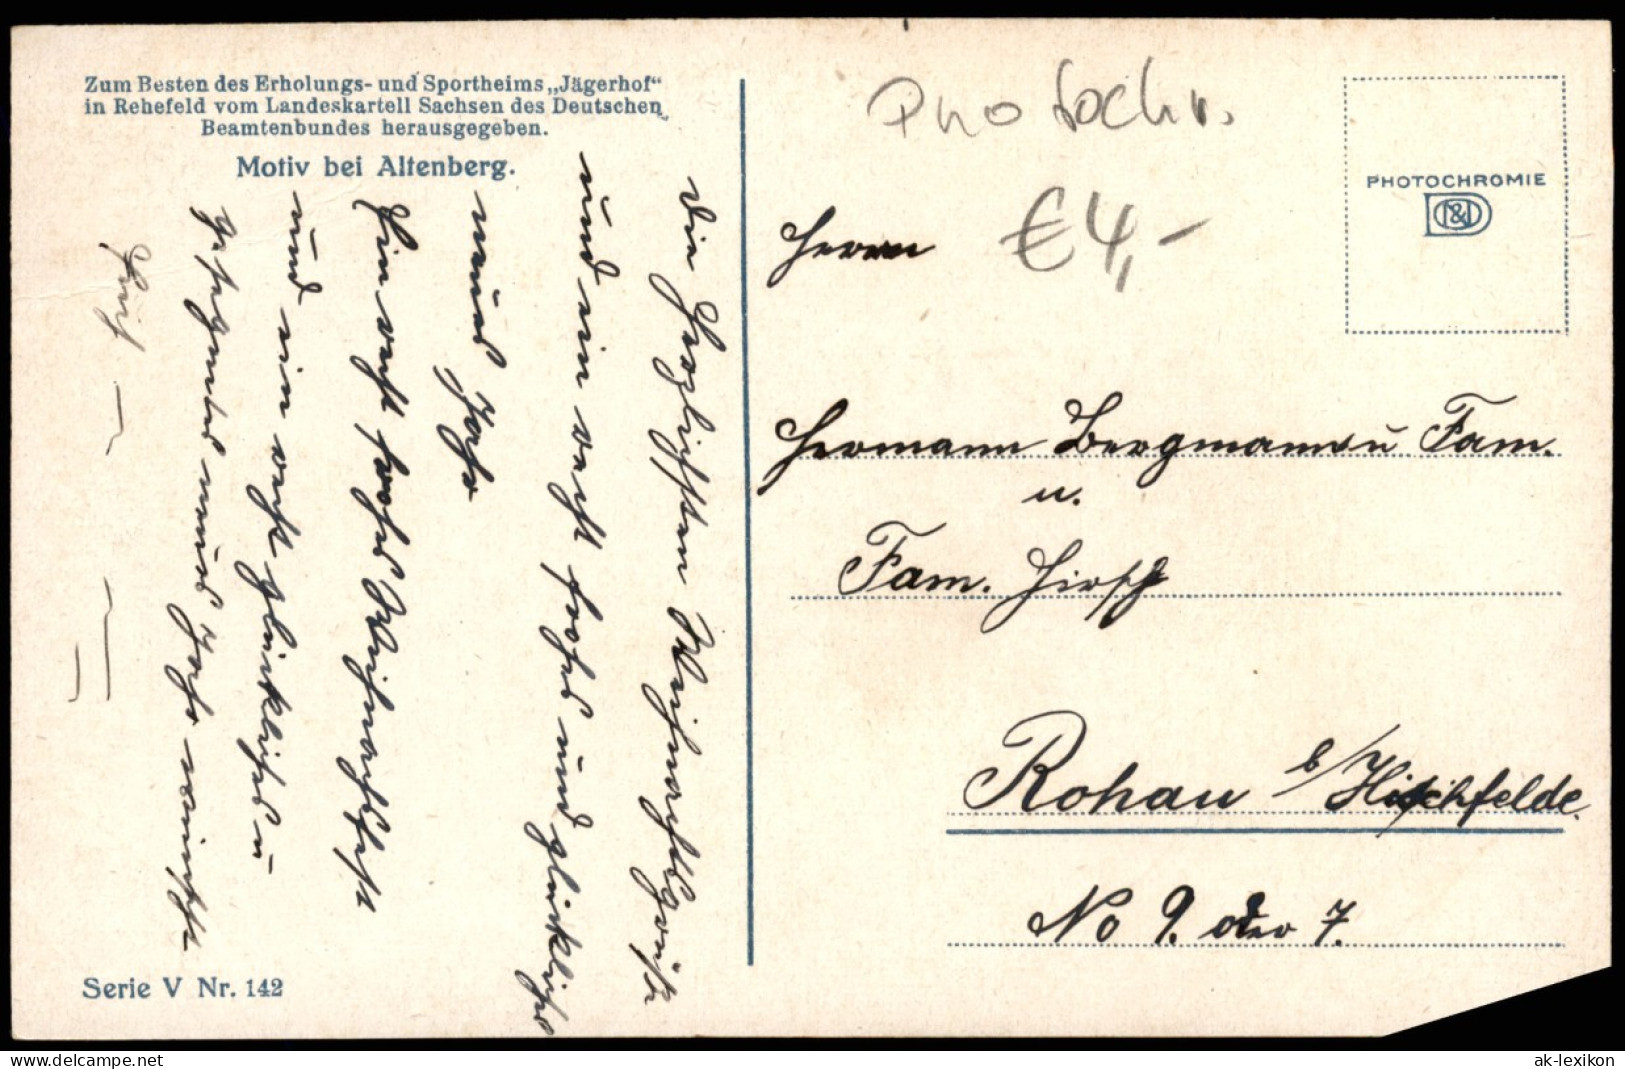 Zum Besten des Erholungs- und Sportheims „Jägerhof“
in Rehefeld vom Landeskartell Sachsen des Deutschen
Beamtenbundes herausgegeben.
Motiv bei Altenberg.
Die herzlichsten Weihnachtsgrüße
und ein recht frohes und glückliches
neues Jahr
Ein recht frohes Weihnachtsfest
und ein recht glückliches u
gesegnetes neues Jahr wünscht
Serie V Nr. 142
Photochr.
€4,-
PHOTOCHROMIE
D&D
Herrn
Hermann Bergmann u Fam.
u.
Fam. Hirsch
Rohau b/Hirschfelde.
No 9. oder 7.
ak-lexikon
www.delcampe.net